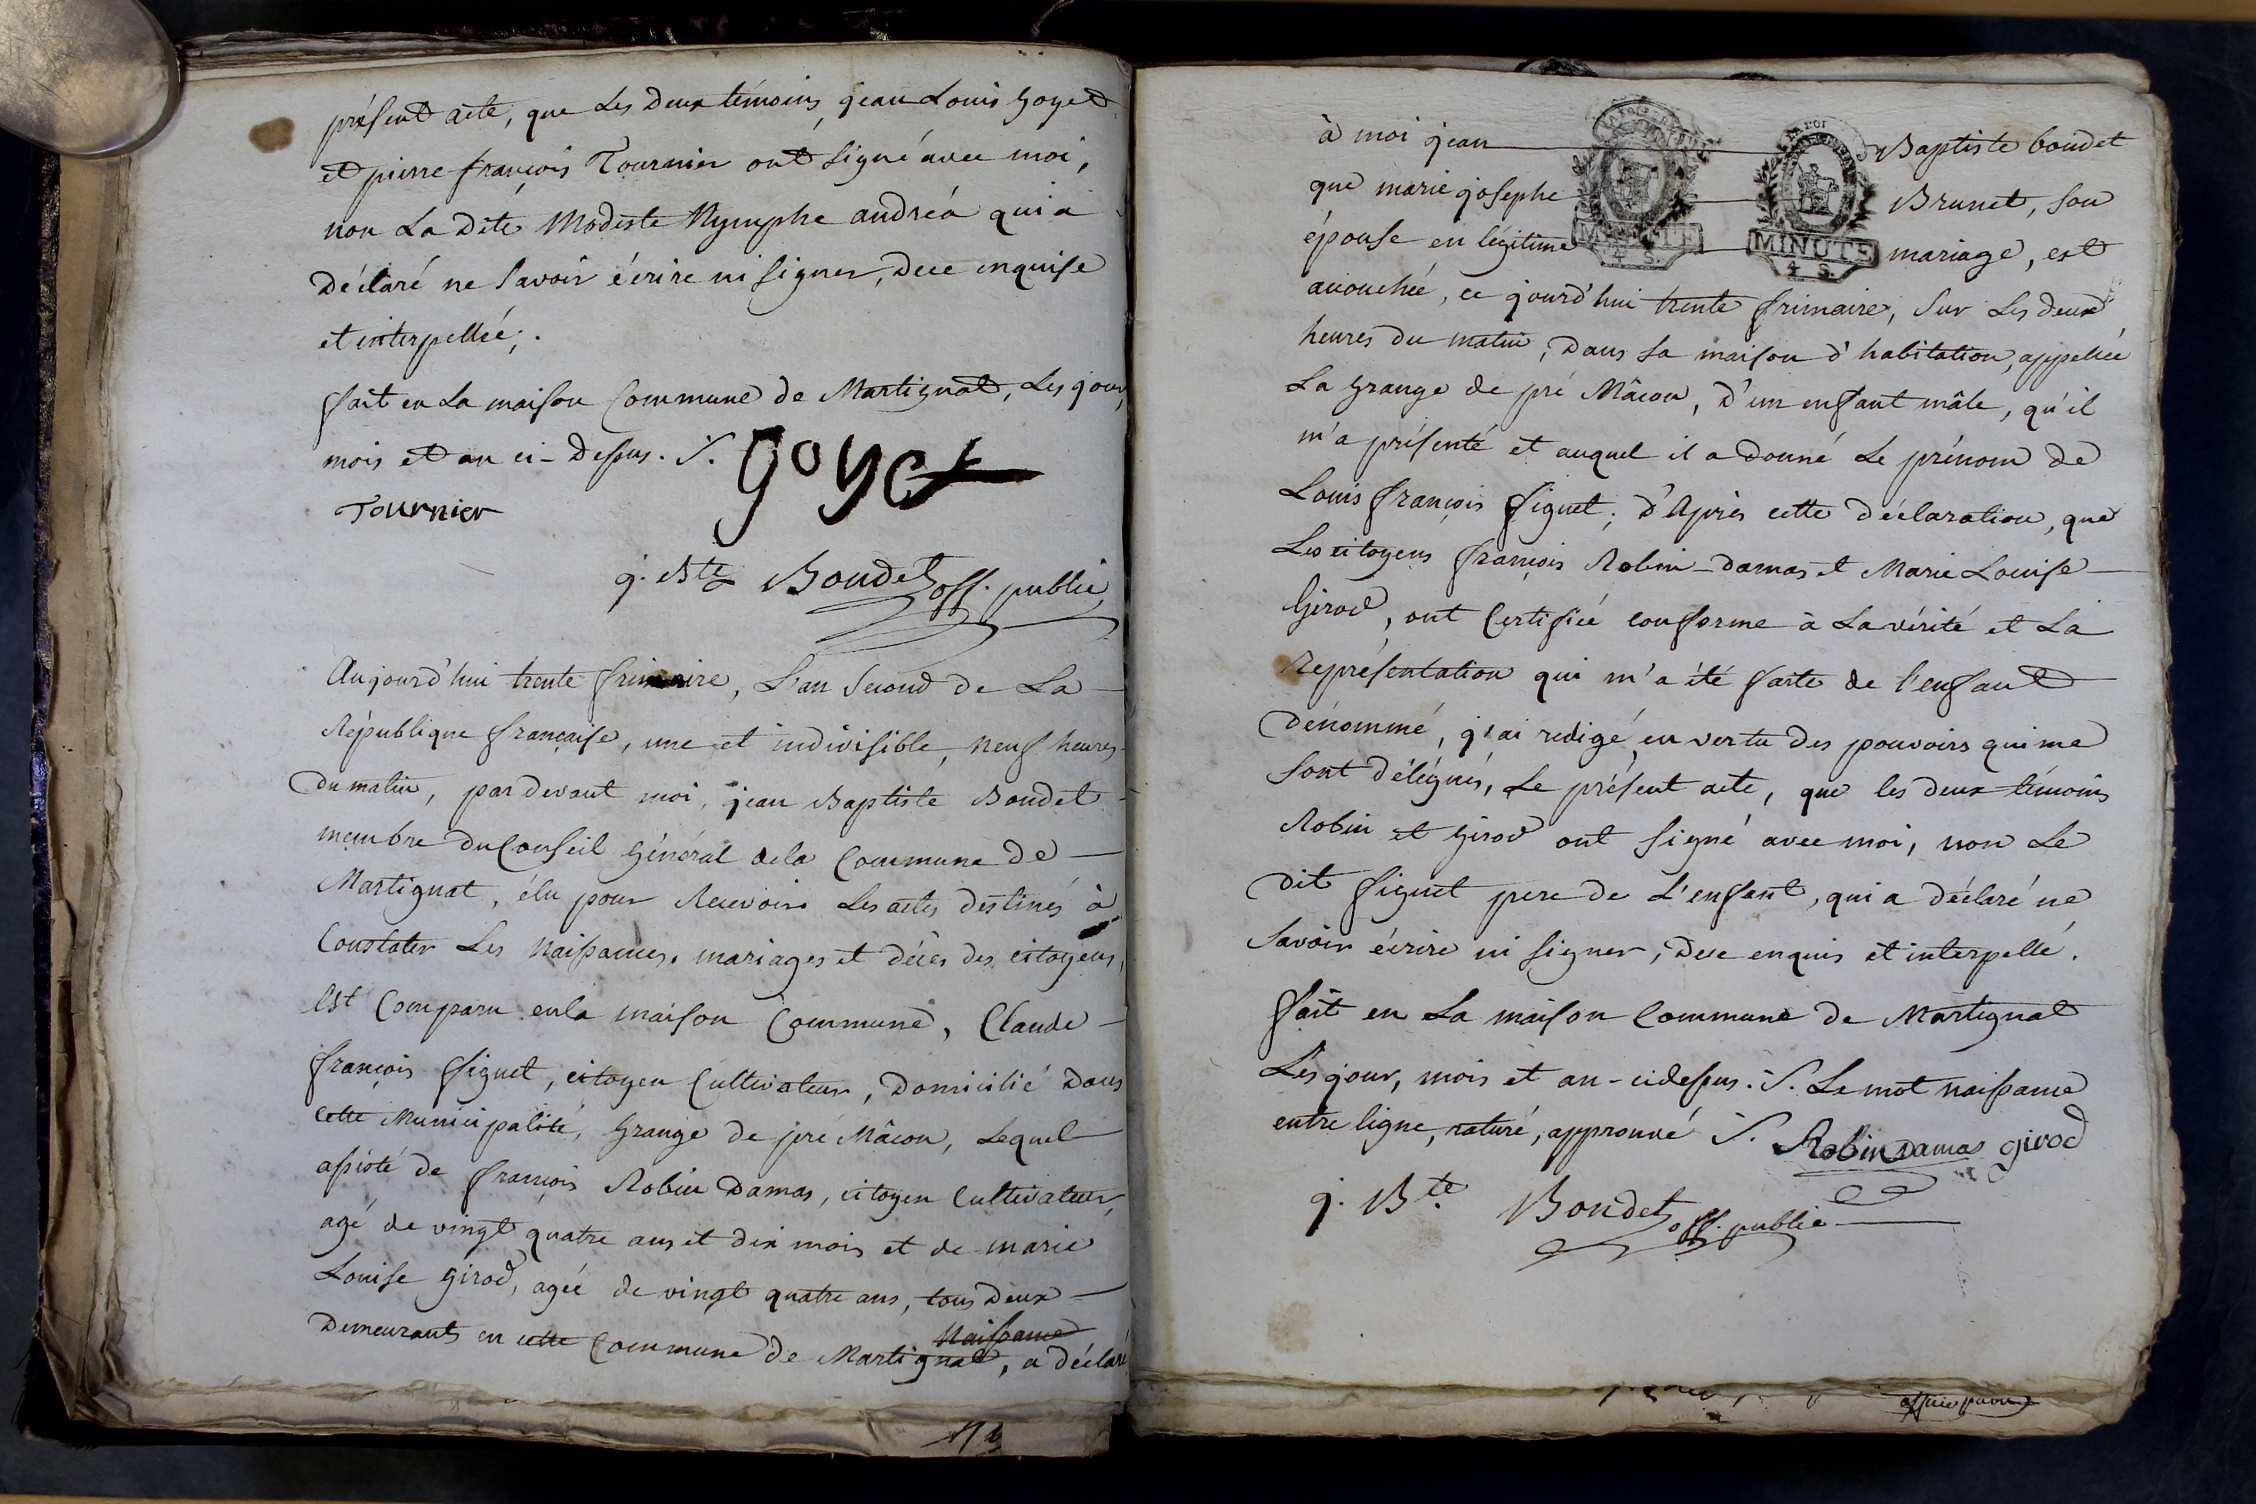 présent acte, que les deux témoins, jean Louis Goyet
et pierre françois Tournier ont signé avec moi,
non La Dite Modeste Nymphe andréa qui a
Déclaré ne savoir écrire ni signer, De ce enquise
et interpellée.
fait en La maison Commune de Martignat, les jour,
mois et an ci-dessus. S. Goyet
Tournier
j. Bte Boudet off. public
Aujourd'hui trente frimaire, L'an second de La
République française, une et indivisible, neuf heures
du matin, par devant moi, jean Baptiste Boudet
membre du Conseil Général de la Commune de
Martignat, élu pour Recevoir les actes destinés à
Constater Les Naissances, mariages et décès des citoyens,
est Comparu en la maison Commune, Claude
françois figuet, citoyen Cultivateur, Domicilié Dans
cette Municipalité, Grange de pré Mâcon, Lequel
assisté de françois Robin Damas, citoyen Cultivateur,
agé de vingt quatre ans et dix mois et de marie
Louise girod, agée de vingt quatre ans, tous Deux
Naissance
Demeurants en cette Commune de Martignat, a déclaré
à moi jean Baptiste boudet
que marie josephe Brunet, son
épouse en légitime mariage, est
LA LOI
MINUTE
4 S.
MINUTE
4 S.
accouchée, ce jourd'hui trente frimaire, sur les deux
heures du matin, Dans sa maison d'habitation, appellée
La grange de pré Mâcon, D'un enfant mâle, qu'il
m'a présenté et auquel il a donné le prénom de
Louis françois figuet; D'Après cette déclaration, que
Les citoyens françois Robin-Damas et Marie Louise
Girod, ont Certifiée conforme à La vérité et La
Représentation qui m'a été faite de l'enfant
Dénommé, j'ai redigé en vertu des pouvoirs qui me
sont délégués, le présent acte, que les deux témoins
Robin et Girod ont signé avec moi, non Le
dit figuet pere de L'enfant, qui a déclaré ne
savoir écrire ni signer, De ce enquis et interpellé.
fait en La maison Commune de Martignat
Les jour, mois et an-cidessus. S. Le mot naissance
entre ligne, raturé, approuvé S. Robin Damas girod
j. Bte Boudet off. public